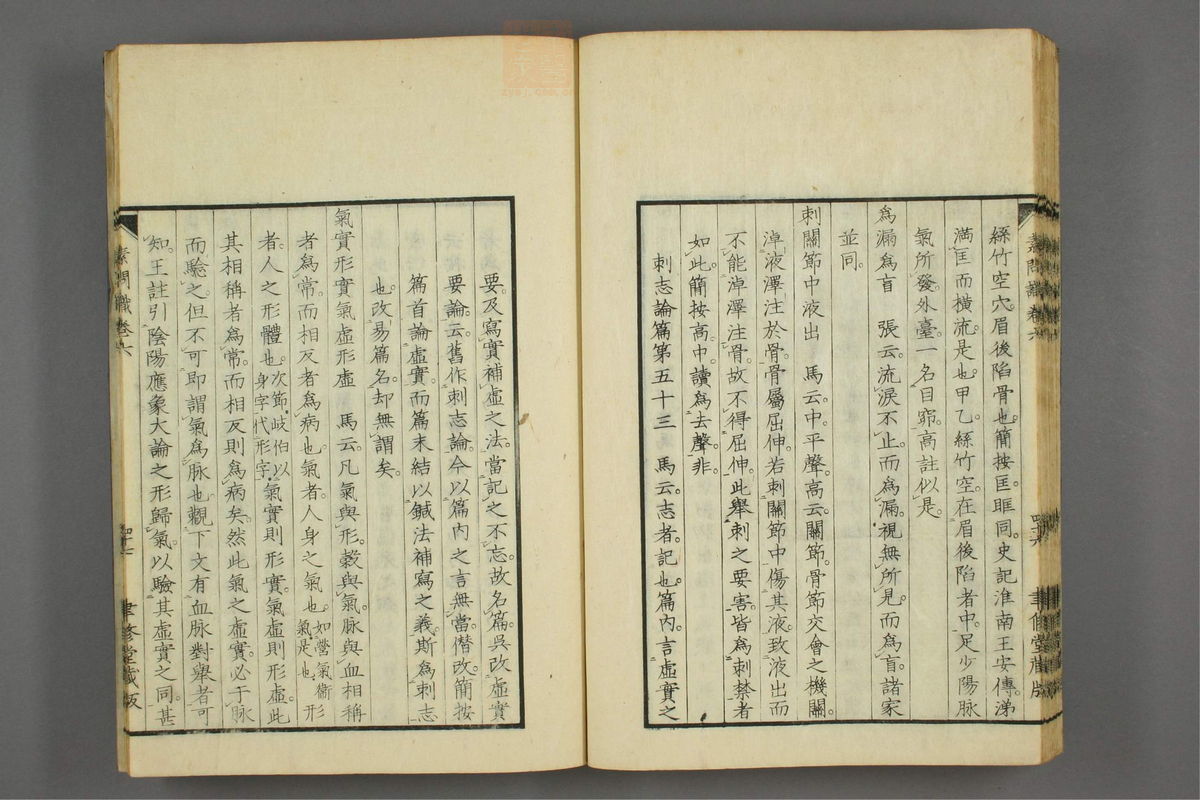 絲竹空穴。眉後陷骨也。簡按匡眶同。史記淮南王安傳。涕
滿匡而橫流。是也。甲乙。絲竹空。在眉後陷者中。足少陽脈
氣所發。外臺。一名目窌。高註似是。
爲漏爲盲　張云。流淚不止而爲漏。視無所見而爲盲。諸家
並同。
刺關節中液出　馬云。中平聲。高云。關節。骨節交會之機關。
淖液澤注於骨。骨屬屈伸。若刺關節中傷其液。致液出而
不能淖澤注骨。故不得屈伸。此舉刺之要害。皆爲刺禁者
如此。簡按高中。讀爲去聲。非。
刺志論篇第五十三　馬云。志者。記也。篇內言虛實之
素問識卷六　四十六　聿修堂藏版
要。及寫實補虛之法。當記之不忘。故名篇。吳改虛實
要論。云。舊作刺志論。今以篇內之言無當。僭改。簡按
篇首論虛實。而篇末結以鍼法補寫之義。斯爲刺志
也。改易篇名。却無謂矣。
氣實形實氣虛形虛　馬云。凡氣與形。穀與氣。脈與血相稱
者爲常。而相反者爲病也。氣者。人身之氣也。如營氣衞氣是也。形
者。人之形體也。次節。岐伯以身字代形字。氣實則形實。氣虛則形虛。此
其相稱者爲常。而相反則爲病矣。然此氣之虛實。必于脈
而驗之。但不可即謂氣爲脈也。觀下文有血脈對舉者可
知。王註引陰陽應象大論之形歸氣。以驗其虛實之同。甚
素問識卷六　四十七　聿修堂藏版